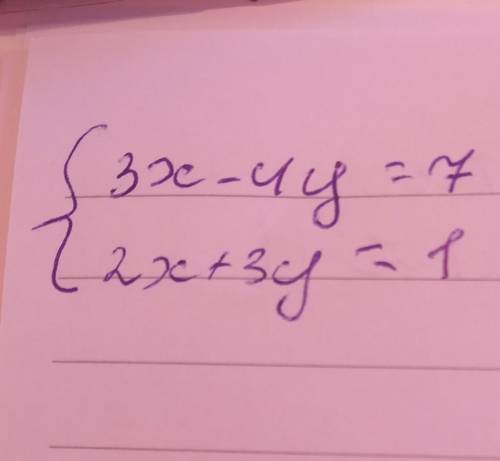 { 3x - 4y = 7
2x + 3y = 1